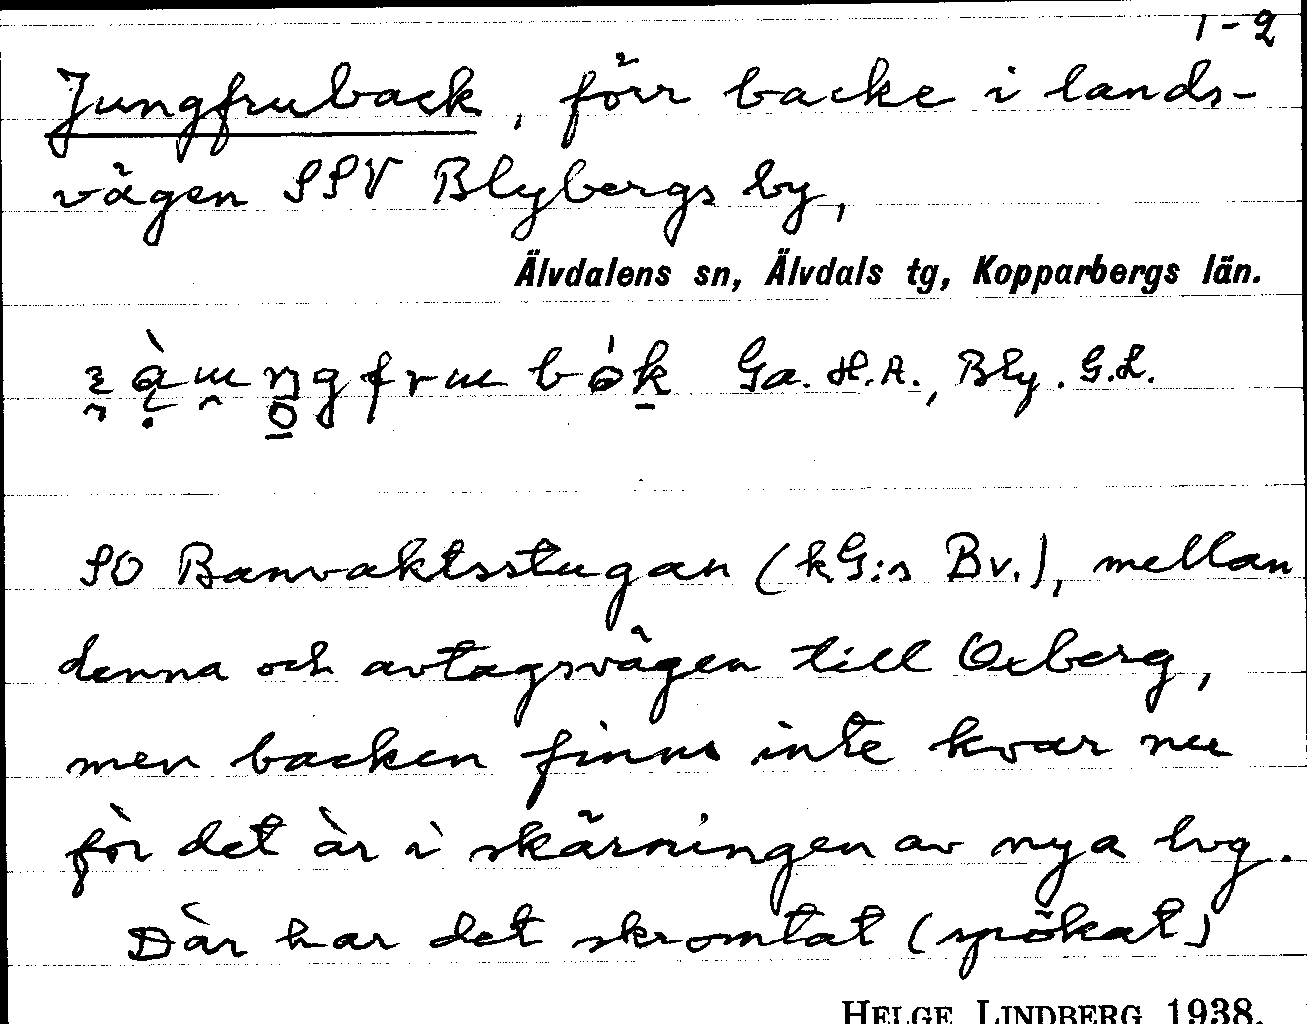 1-2
Jungfruback, förr backe i lands-
vägen SSV Blybergs by,
Älvdalens sn, Älvdals tg, Kopparbergs län.
Ga. H.A., Bly. G.L.
SO Banvaktsstugan (kG:s Bv.), mellan
denna och avtagsvägen till Oxberg,
men backen finns inte kvar nu
för det är i skärningen av nya lvg.
Där har det skromtat (spökat)
HELGE LINDBERG 1938.